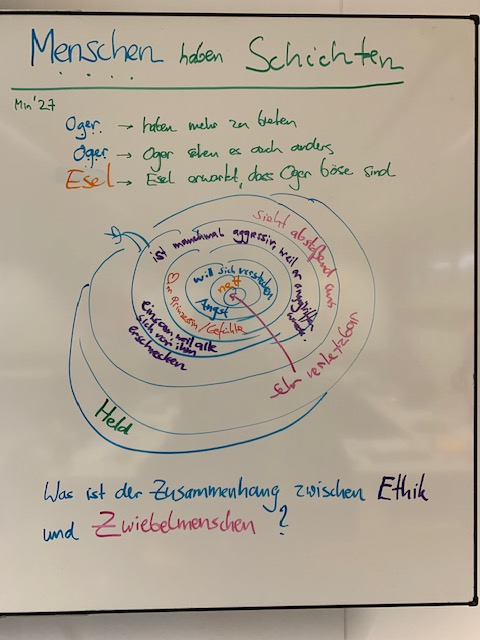 Menschen haben Schichten
Min' 27
Oger → haben mehr zu bieten
Oger → Oger sehen es auch anders
Esel → Esel erwartet, dass Oger böse sind
Sieht abstoßend aus
ist manchmal aggressiv, weil er angegriffen wurde.
will sich verstecken
nett
Angst
Prinzessin/Gefühle
einsam weil alle
sich vor ihm
erschrecken
sehr verletzbar
Held
Was ist der Zusammenhang zwischen Ethik
und Zwiebelmenschen?